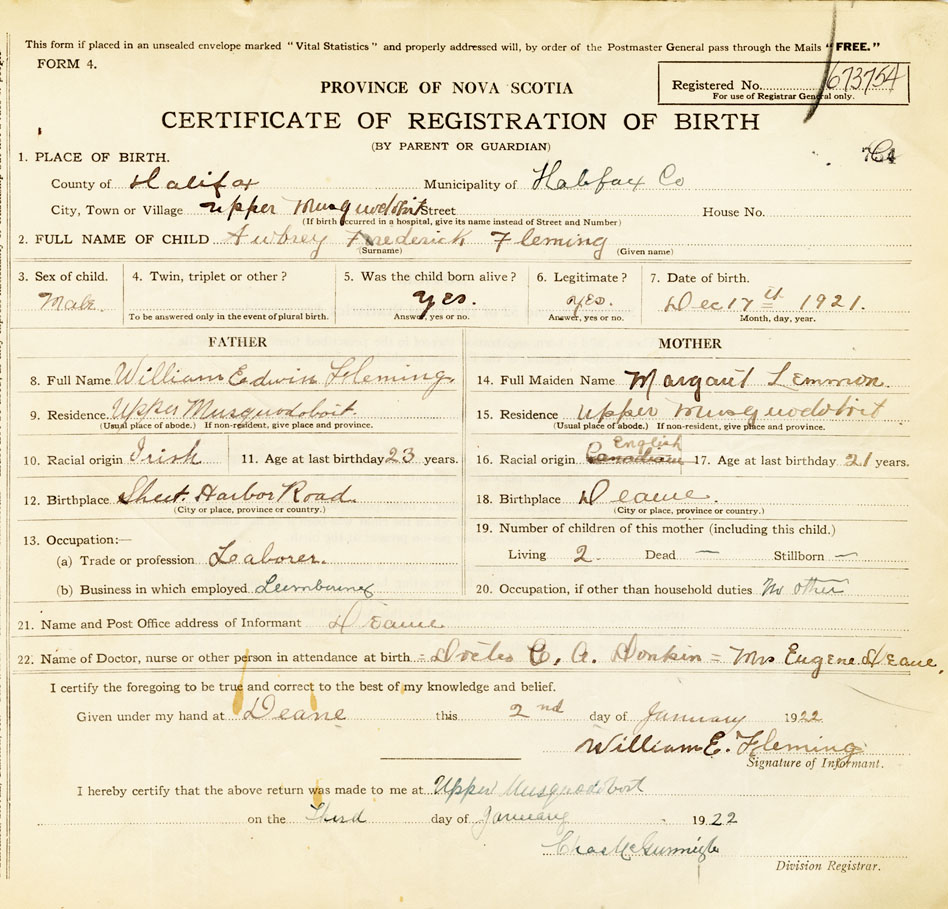 This form if placed in an unsealed envelope marked "Vital Statistics" and properly addressed will, by order of the Postmaster General pass through the Mails "FREE."
FORM 4.
Registered No. 673754
For use of Registrar General only.
PROVINCE OF NOVA SCOTIA
CERTIFICATE OF REGISTRATION OF BIRTH
(BY PARENT OR GUARDIAN)
1. PLACE OF BIRTH.
County of Halifax Municipality of Halifax Co
City, Town or Village Upper Musquodoboit Street House No.
(If birth occurred in a hospital, give its name instead of Street and Number)
2. FULL NAME OF CHILD Aubrey Frederick Fleming
(Surname) (Given name)
3. Sex of child. 4. Twin, triplet or other? 5. Was the child born alive? 6. Legitimate? 7. Date of birth.
Male. yes. yes. Dec 17th 1921.
To be answered only in the event of plural birth. Answer, yes or no. Answer, yes or no. Month, day, year.
FATHER MOTHER
8. Full Name William Edwin Fleming. 14. Full Maiden Name Margaret Lemmon.
9. Residence. Upper Musquodoboit. 15. Residence Upper Musquodoboit
(Usual place of abode.) If non-resident, give place and province. (Usual place of abode.) If non-resident, give place and province.
English
10. Racial origin Irish 11. Age at last birthday 23 years. 16. Racial origin Canadian 17. Age at last birthday 21 years.
12. Birthplace Sheet Harbor Road. 18. Birthplace Deane.
(City or place, province or country.) (City or place, province or country.)
13. Occupation:— 19. Number of children of this mother (including this child.)
(a) Trade or profession Leaborer. Living 2. Dead — Stillborn —
(b) Business in which employed 20. Occupation, if other than household duties No other
21. Name and Post Office address of Informant Deane
22. Name of Doctor, nurse or other person in attendance at birth = A. Donkin = Mrs Eugene Deane.
I certify the foregoing to be true and correct to the best of my knowledge and belief.
Given under my hand at Deane this 2nd day of January 1922
William E. Fleming
Signature of Informant.
I hereby certify that the above return was made to me at Upper Musquodoboit
on the Third day of January 1922
Division Registrar.